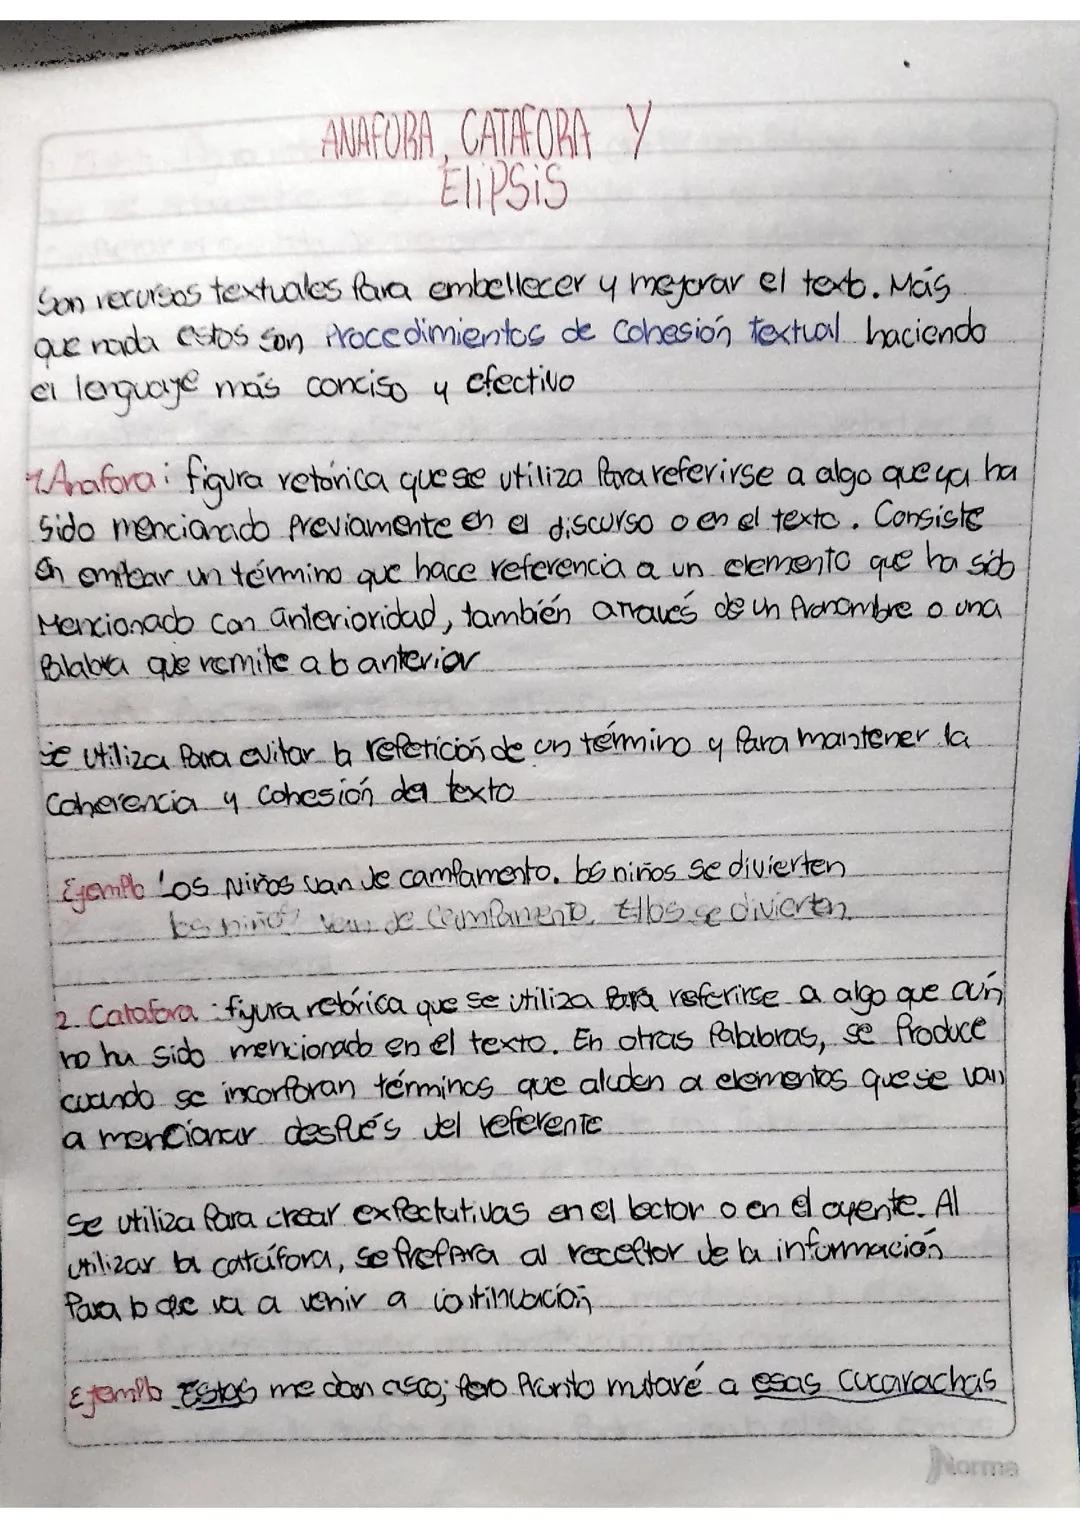 ANAFORA, CATAFORA Y
ElipSiS
Son recursos textuales Para embellecer y mejorar el texto. Más
que nada estos son Procedimientos de Cohesión textual haciendo
el lenguaje más conciso y efectivo
1. Anafora: figura retórica que se utiliza Para referirse a algo que ya ha
sido mencionado Previamente en el discurso o en el texto. Consiste
en emitear un término que hace referencia a un elemento que ha sido
Mencionado con anterioridad, también atraués de un Pronombre o una
Palabra que remite a lo anterior
Se utiliza Para evitar la repetición de un término y Para mantener la
Coherencia y Cohesión del texto
Ejemplo Los Niños van de campamento. los niños se divierten
los niños van de Campamento. Ellos se divierten
2. Catafora: figura retórica que se utiliza Para referirse a algo que aún
no ha sido mencionado en el texto. En otras Palabras, se Produce
cuando se incorporan términos que aluden a elementos que se van
a mencionar después del referente
Se utiliza Para crear expectativas en el lector o en el oyente. Al
utilizar la catáfora, se PrepAra al receptor de la información
Para lo que va a venir a continuación
Ejemplo Estas me dan asco; Pero Pronto mataré a esas cucarachas
Norma